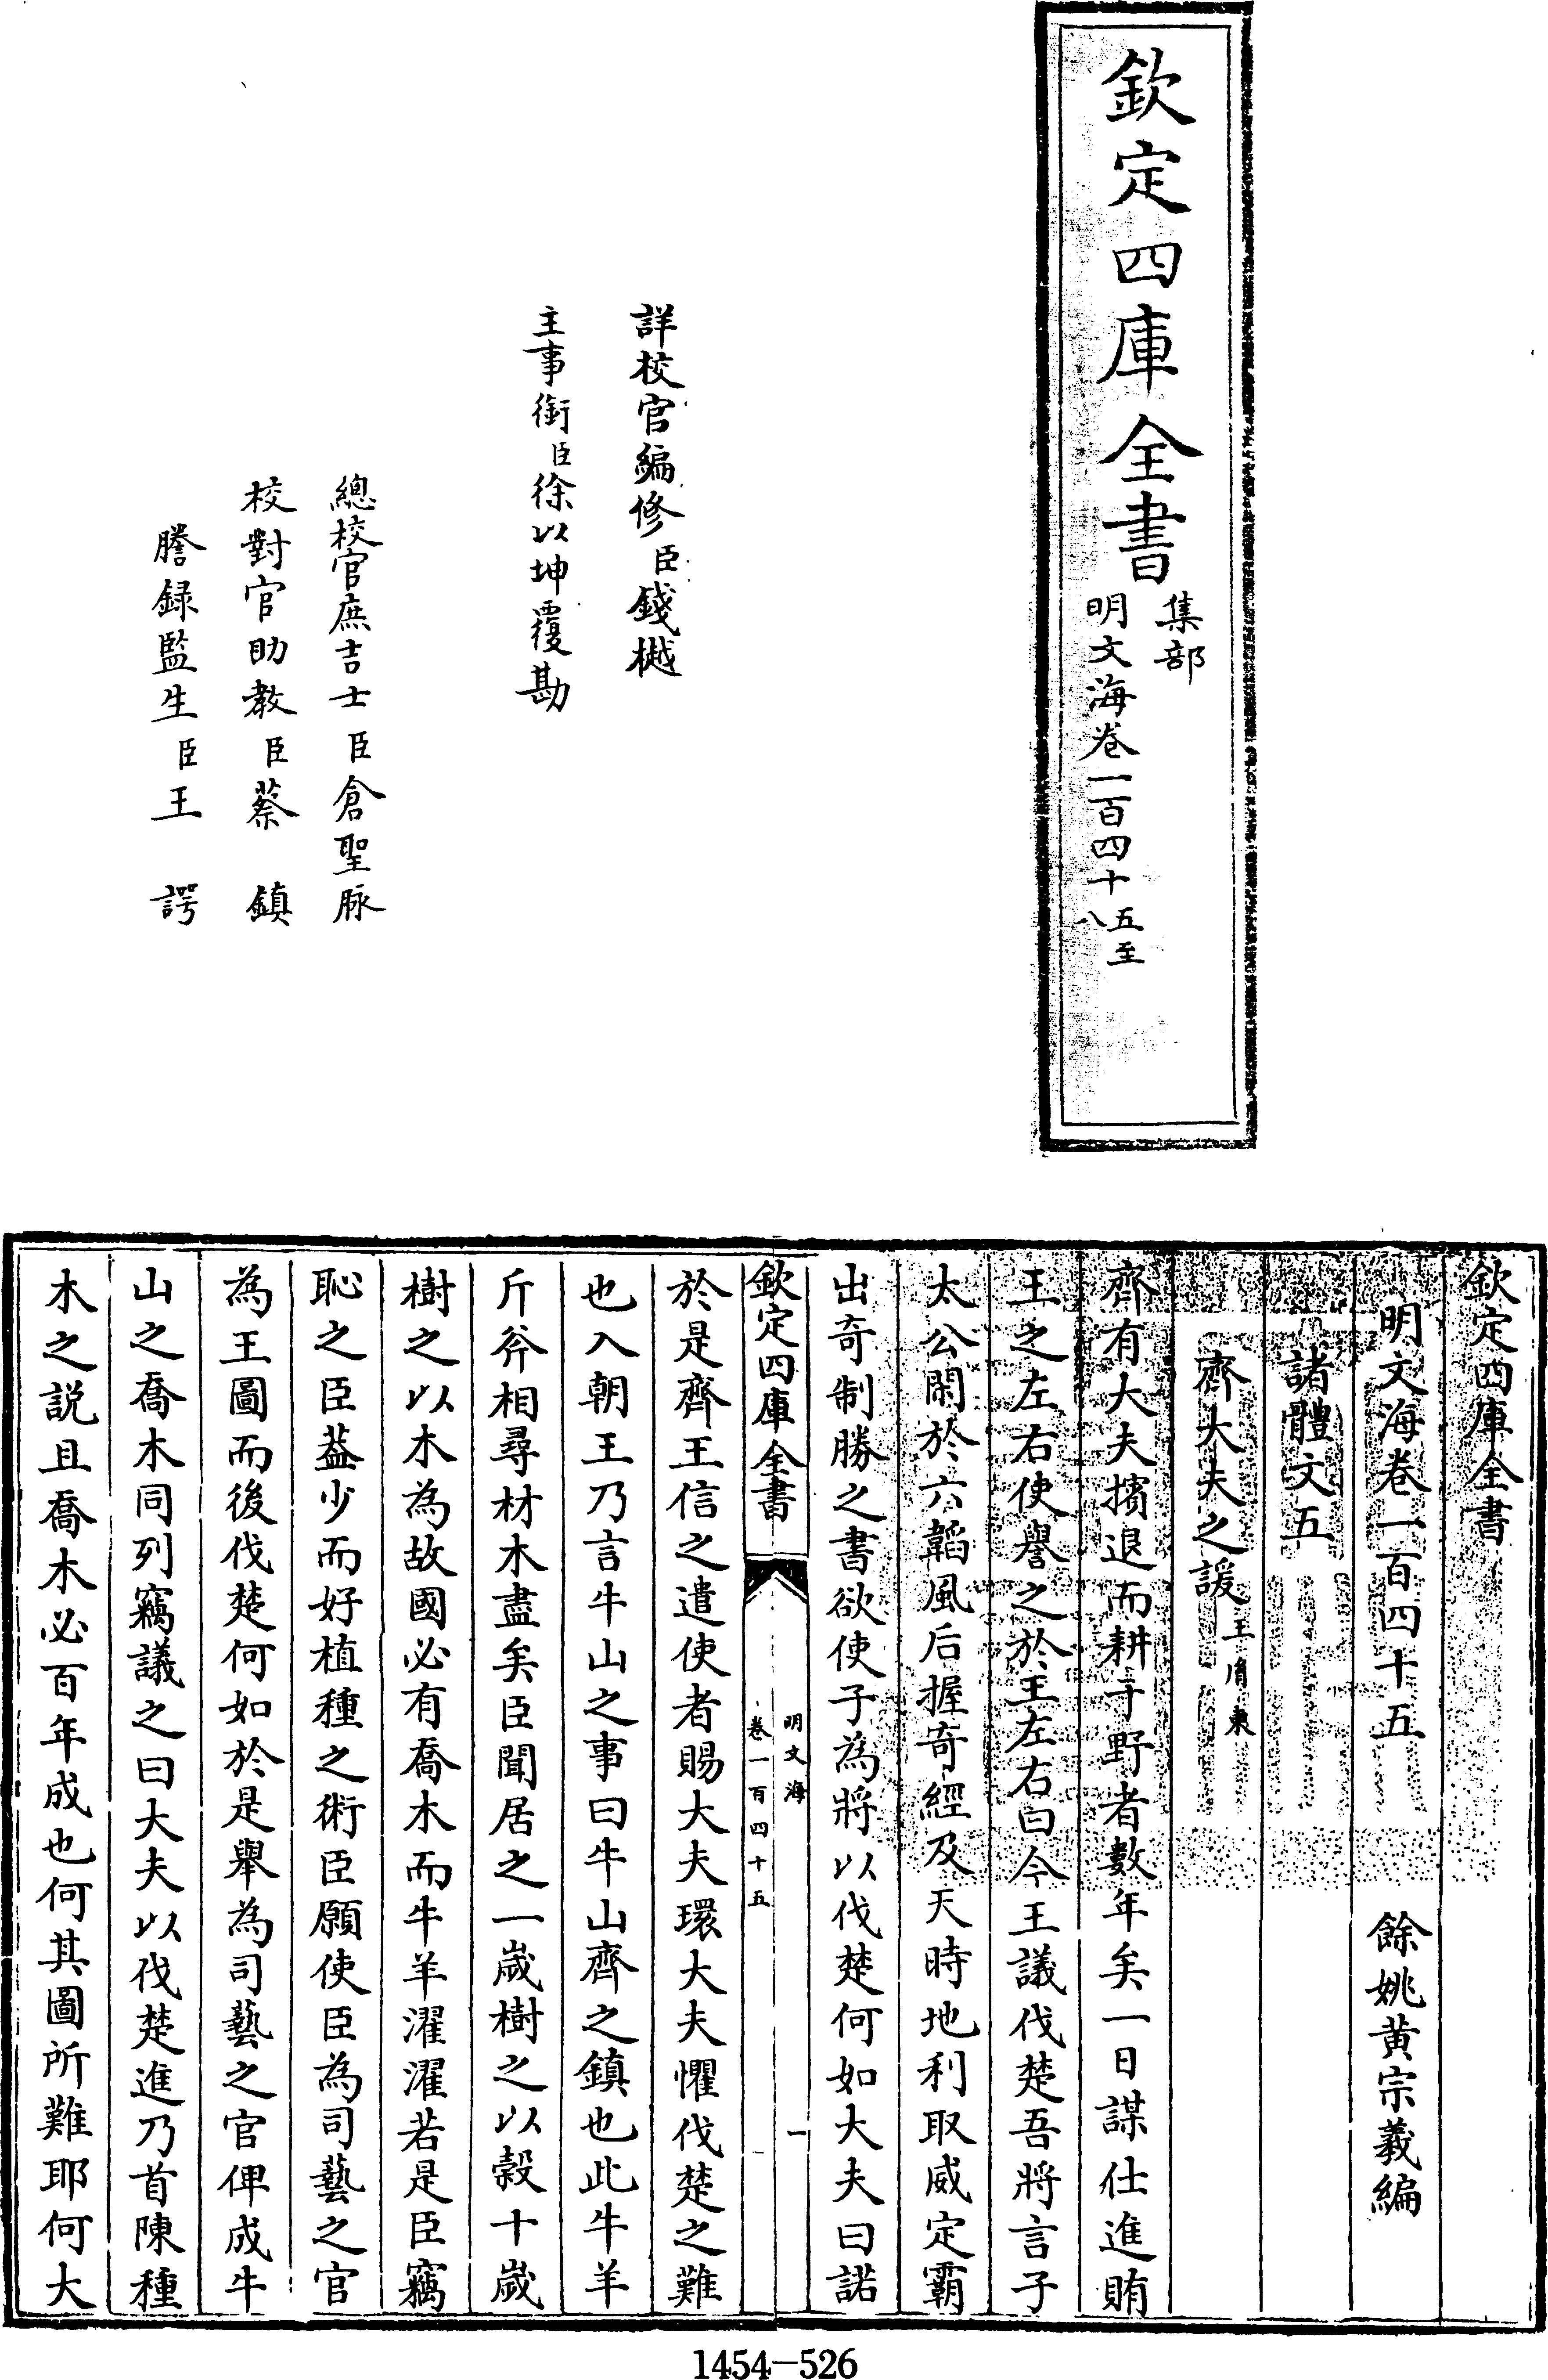 欽定四庫全書
集部
明文海卷一百四十五至
八
詳校官編修臣錢樾
主事銜臣徐以坤覆勘
總校官庶吉士臣倉聖脈
校對官助教臣蔡鎮
謄録監生臣王諤
欽定四庫全書
明文海卷一百四十五
餘姚黄宗羲編
諸體文五
齊大夫之諼王脩東
齊有大夫擯退而耕于野者數年矣一日謀仕進賄
王之左右使譽之於王左右曰今王議伐楚吾將言子
太公閑於六韜風后握奇經及天時地利取威定霸
出奇制勝之書欲使子為將以伐楚何如大夫曰諾
欽定四庫全書
明文海
卷一百四十五
一
於是齊王信之遣使者賜大夫環大夫懼伐楚之難
也入朝王乃言牛山之事曰牛山齊之鎮也此牛羊
斤斧相尋材木盡矣臣聞居之一歲樹之以穀十歲
樹之以木為故國必有喬木而牛羊濯濯若是臣竊
恥之臣葢少而好植種之術臣願使臣為司藝之官
為王圖而後伐楚何如於是舉為司藝之官俾成牛
山之喬木同列竊議之曰大夫以伐楚進乃首陳種
木之説且喬木必百年成也何其圖所難耶何大
1454-526